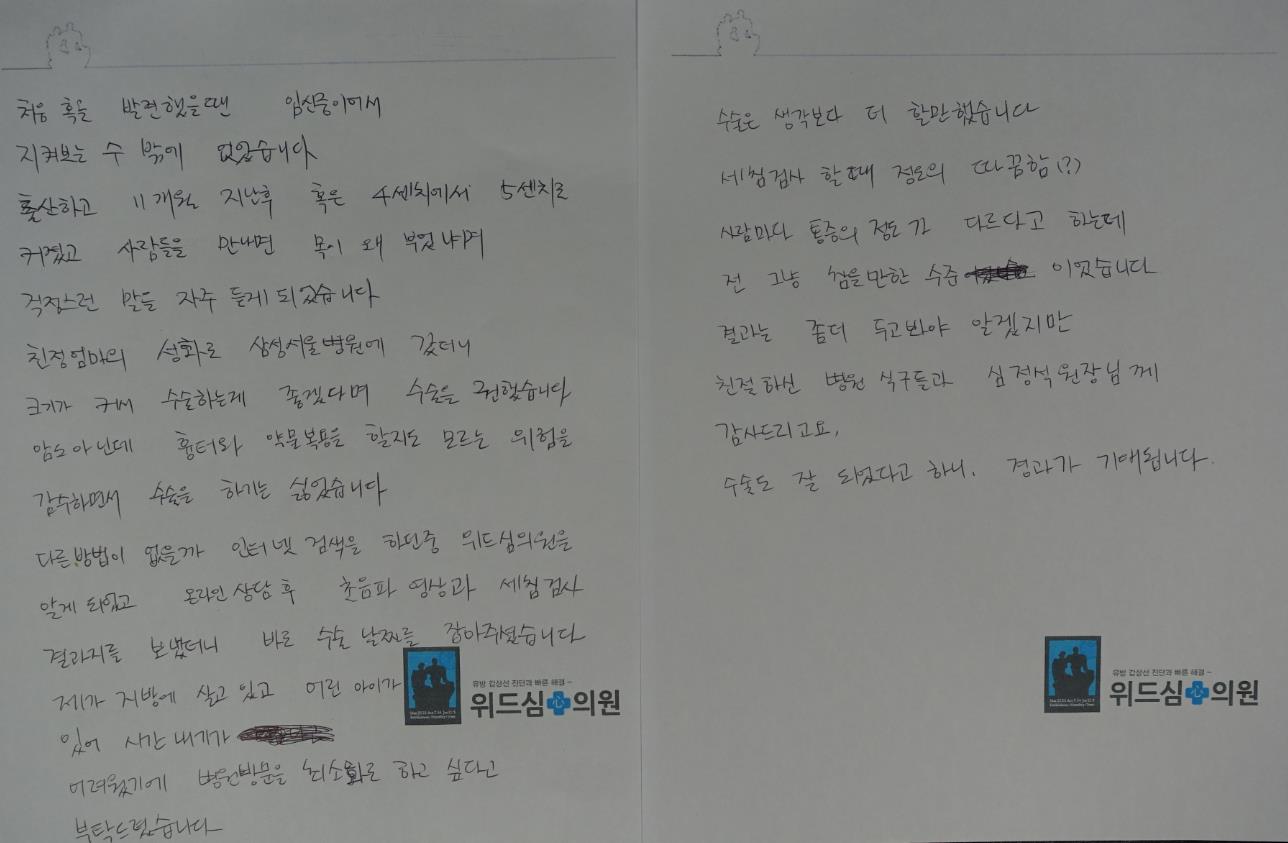 처음 혹을 발견했을땐 임신중이어서
지켜보는 수 밖에 없었습니다
출산하고 11개월 지난후 혹은 4센치에서 5센치로
커졌고 사람들을 만나면 목이 왜 부었냐며
걱정스런 말을 자주 듣게 되었습니다
친정엄마의 성화로 삼성서울병원에 갔더니
크기가 커서 수술하는게 좋겠다며 수술을 권했습니다
암도 아닌데 흉터와 약물복용을 할지도 모르는 위험을
감수하면서 수술을 하기는 싫었습니다
다른 방법이 없을까 인터넷 검색을 하던중 위드심의원을
알게 되었고 온라인 상담 후 초음파 영상과 세침검사
결과지를 보냈더니 바로 수술 날짜를 잡아주셨습니다
제가 지방에 살고 있고 어린 아이가
있어 시간 내기가
어려웠기에 병원방문을 최소화로 하고 싶다고
부탁드렸습니다
유방 갑상선 진단과 빠른 해결 ~
위드심의원
수술은 생각보다 더 할만했습니다
세침검사 할때 정도의 따끔함(?)
사람마다 통증의 정도가 다르다고 하는데
전 그냥 참을만한 수준 이었습니다
결과는 좀더 두고봐야 알겠지만
친절하신 병원 식구들과 심정석원장님께
감사드리고요,
수술도 잘 되었다고 하니, 경과가 기대됩니다.
유방 갑상선 진단과 빠른 해결 ~
위드심의원